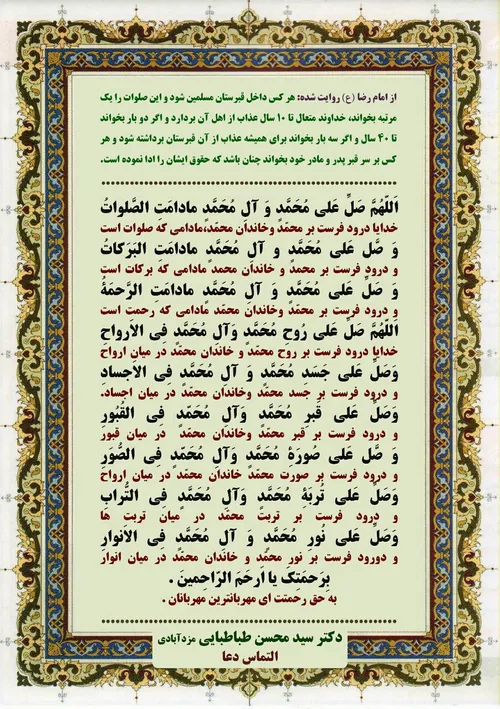 از امام رضا (ع) روایت شده: هر کس داخل قبرستان مسلمین شود و این صلوات را یک
مرتبه بخواند، خداوند متعال تا ۱۰ سال عذاب از اهل آن بردارد و اگر دو بار بخواند
تا ۴۰ سال و اگر سه بار بخواند برای همیشه عذاب از آن قبرستان برداشته شود و هر
کس بر سر قبر پدر و مادر خود بخواند چنان باشد که حقوق ایشان را ادا نموده است.
اَللّهُمَّ صَلِّ عَلی مُحَمَّدٍ وَ آلِ مُحَمَّدٍ مادامَتِ الصَّلَواتُ
خدایا درود فرست بر محمّد و خاندان محمّد،مادامی که صلوات است
وَ صَلِّ عَلی مُحَمَّدٍ و آلِ مُحَمَّدٍ مادامَتِ البَرَکاتُ
و درود فرست بر محمد و خاندان محمد مادامی که برکات است
وَ صَلِّ عَلی مُحَمَّدٍ وَ آلِ مُحَمَّدٍ مادامَتِ الرَّحمَةُ
و درود فرست بر محمّد وخاندان محمّد مادامی که رحمت است
اَللّهُمَّ صَلِّ عَلی رُوحِ مُحَمَّدٍ وَآلِ مُحَمَّدٍ فِی الاَرواحِ
خدایا درود فرست بر روح محمّد و خاندان محمّد در میان ارواح
وَصَلِّ عَلی جَسَدِ مُحَمَّدٍ وَ آلِ مُحَمَّدٍ فِی الاَجسادِ
و درود فرست بر جسد محمّد وخاندان محمّد در میان اجساد.
وَصَلِّ عَلی قَبرِ مُحَمَّدٍ وَآلِ مُحَمَّدٍ فِی القُبُورِ
و درود فرست بر قبر محمّد وخاندان محمّد در میان قبور
وَ صَلِّ عَلی صُورَةِ مُحَمَّدٍ وَآلِ مُحَمَّدٍ فِی الصُّوَرِ
و درود فرست بر صورت محمّد خاندان محمّد در میان ارواح
وَصَلِّ عَلی تُربَةِ مُحَمَّدٍ وَآلِ مُحَمَّدٍ فِی التُّرابِ
و درود فرست بر تربت محمّد در میان تربت ها
وَصَلِّ عَلی نُورِ مُحَمَّدٍ وَ آلِ مُحَمَّدٍ فِی الاَنوارِ
و دورود فرست بر نور محمّد و خاندان محمّد در میان انوار
بِرَحمَتِکَ یا اَرحَمَ الرّاحِمینَ .
به حق رحمتت ای مهربانترین مهربانان .
دکتر سید محسن طباطبایی مزدآبادی
التماس دعا